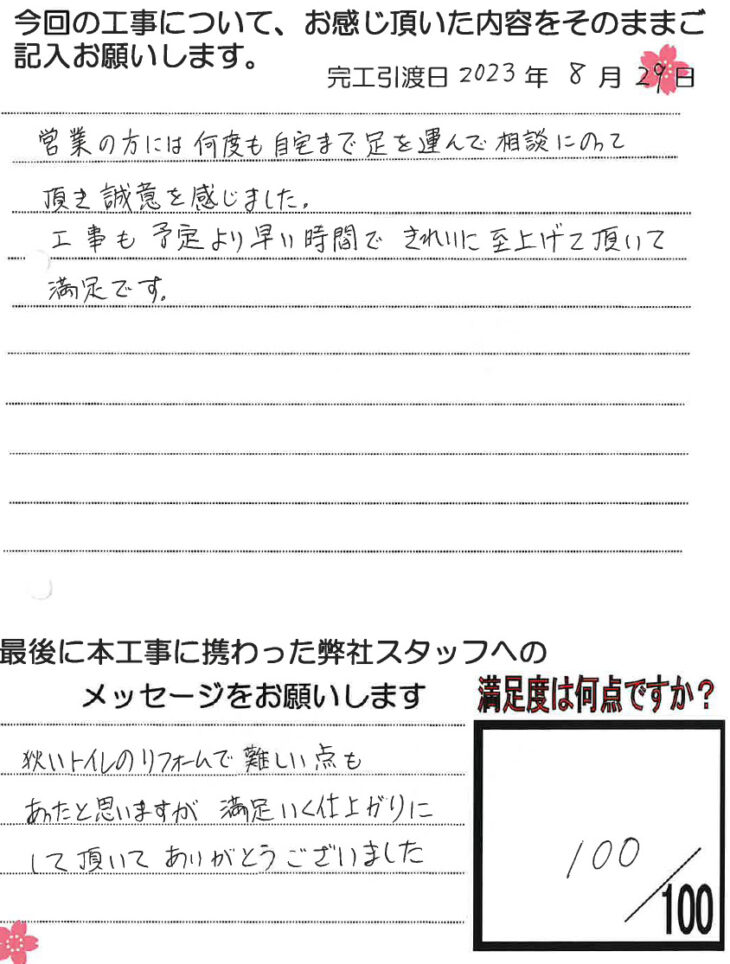 今回の工事について、お感じ頂いた内容をそのままご
記入お願いします。
完工引渡日 2023 年 8 月 29 日
営業の方には何度も自宅まで足を運んで相談にのって
頂き誠意を感じました。
工事も予定より早い時間できれいに至上げて頂いて
満足です。
最後に本工事に携わった弊社スタッフへの
メッセージをお願いします
満足度は何点ですか?
狭いトイレのリフォームで難しい点も
あったと思いますが満足いく仕上がりに
して頂いてありがとうございました
100/100